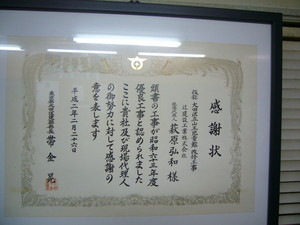 感謝状
辻建設工業株式会社
現場代理人
萩原弘和 様
頭書の工事が昭和六三年度
優良工事と認められました
ここに貴社及び現場代理人
の御努力に対して感謝の
意を表します
平成二年二月二十六日